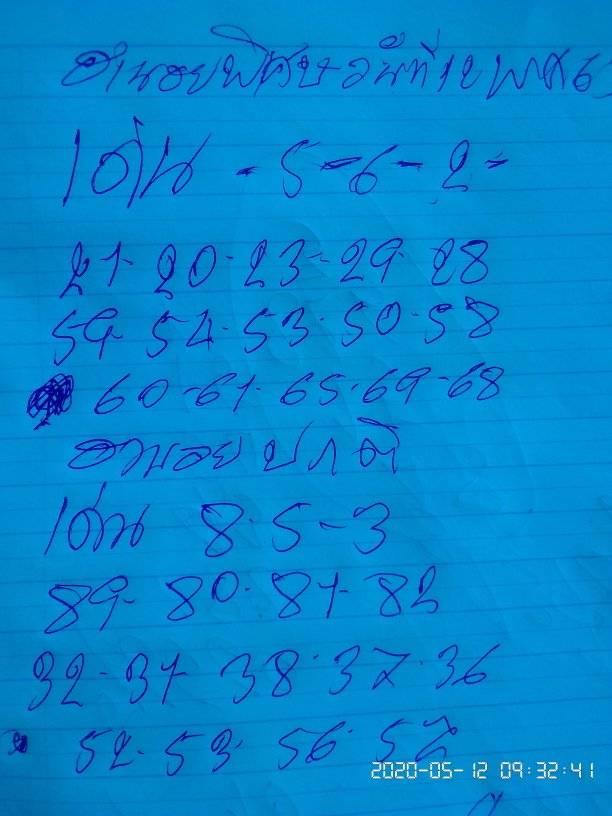 ฮานอยพิเศษวันที่12 พค 63
เด่น - 5-6-2-
21-20-23-29-28
59-54-53-50-58
60-61-65-69-68
ฮานอยปกติ
เด่น 8-5-3
89-80-81-82
32-31-38-37-36
52-53-56-57
2020-05-12 09:32:41